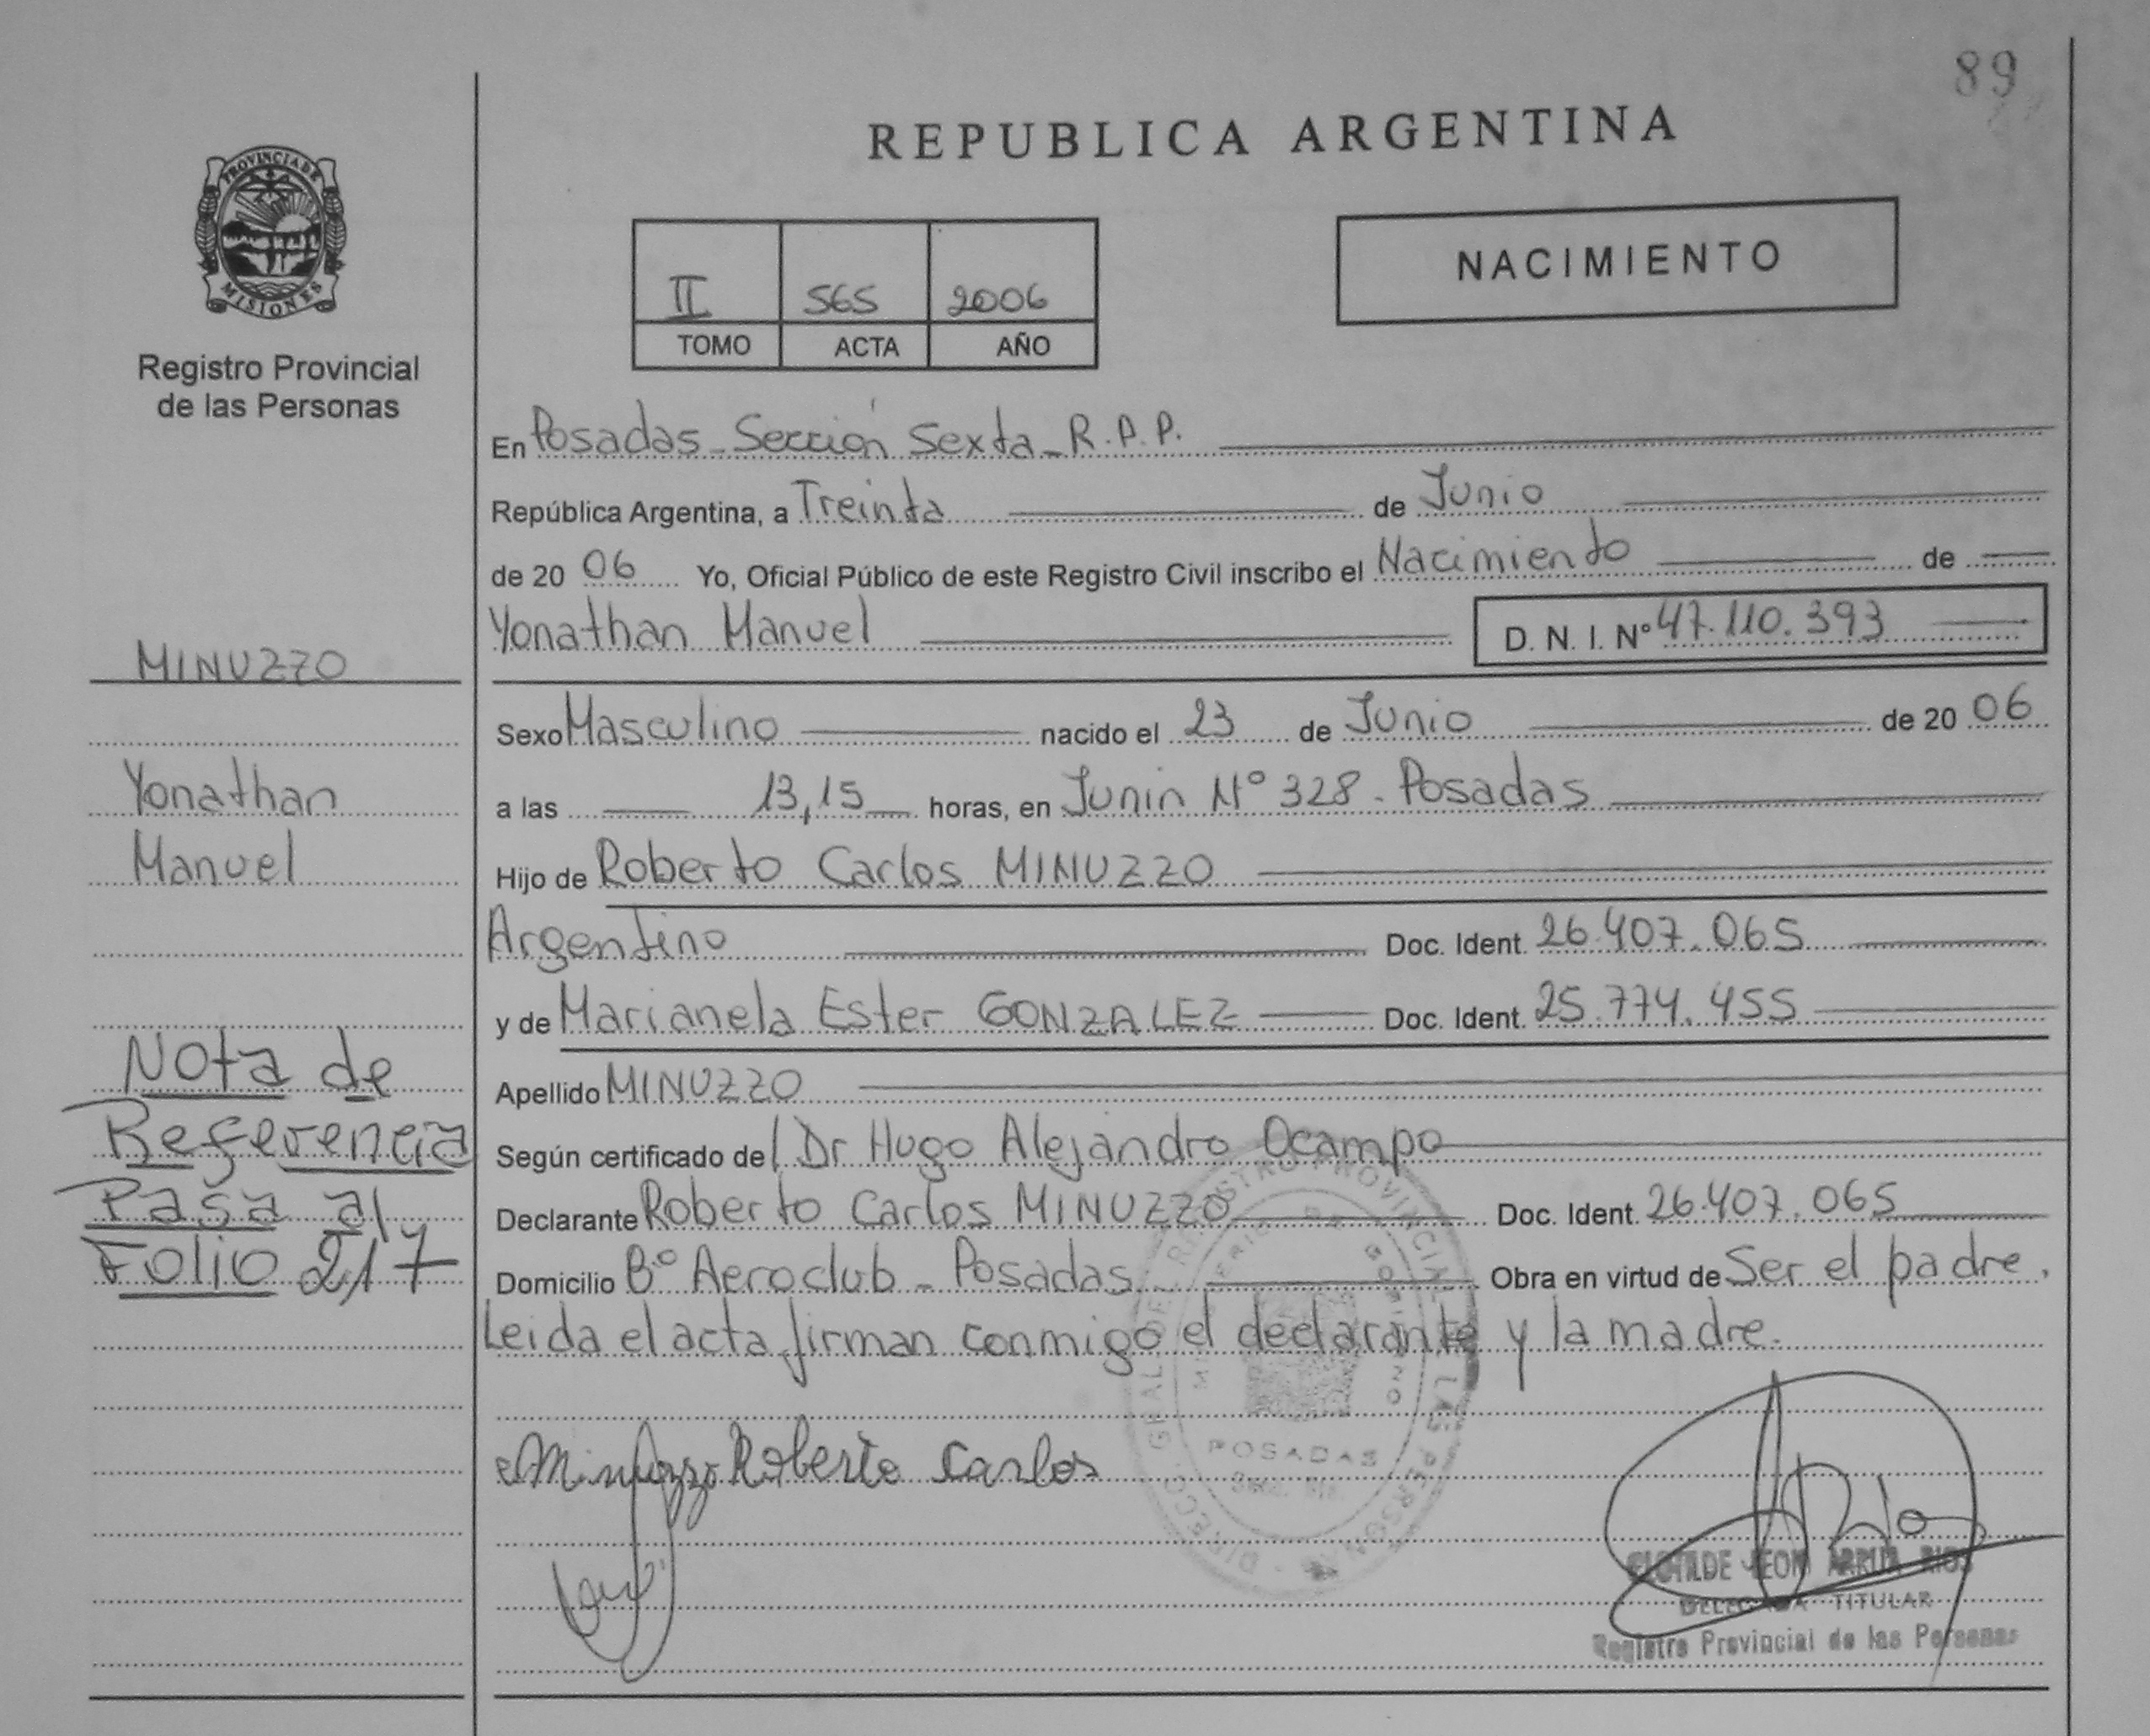 89
REPUBLICA ARGENTINA
PROVINCIA DE MISIONES
Registro Provincial
de las Personas
NACIMIENTO
II 565 2006
TOMO ACTA AÑO
En Posadas - Sección Sexta - R.P.P.
República Argentina, a Treinta de Junio
de 20 06 Yo, Oficial Público de este Registro Civil inscribo el Nacimiento de
Yonathan Manuel D. N. I. Nº 47.110.393
MINUZZO
Sexo Masculino nacido el 23 de Junio de 20 06
Yonathan
a las 13,15 horas, en Junin Nº 328 - Posadas
Manuel
Hijo de Roberto Carlos MINUZZO
Argentino Doc. Ident. 26.407.065
y de Marianela Ester GONZALEZ Doc. Ident. 25.774.455
Nota de
Referencia
Pasa al
Folio 217
Apellido MINUZZO
Según certificado del Dr Hugo Alejandro Ocampo
Declarante Roberto Carlos MINUZZO Doc. Ident. 26.407.065
Domicilio Bº Aeroclub - Posadas Obra en virtud de Ser el padre.
Leida el acta firman conmigo el declarante y la madre.
Minuzzo Roberto Carlos
POSADAS
DELEGADA TITULAR
Registro Provincial de las Personas